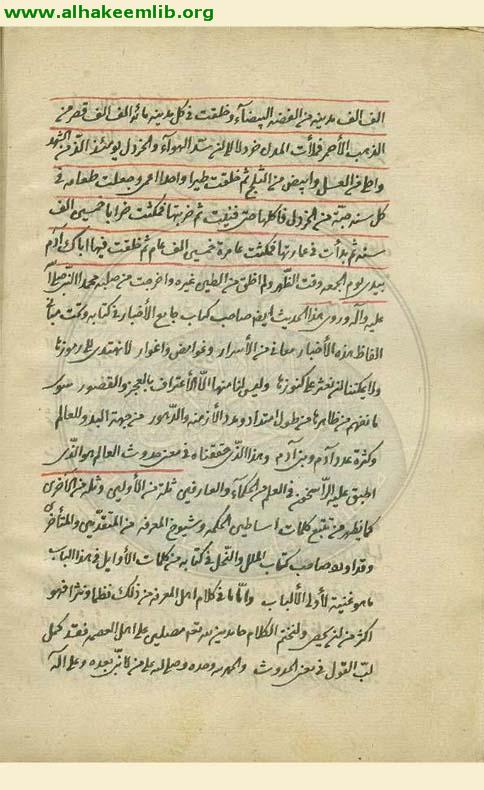 www.alhakeemlib.org
الف الف مدينه من الفضه البيضآء وخلقت في كل مدينه مائه الف الف قصر من
الذهب الأحمر فملأت المدن خردلا الهوآء والخردل يومئذ الذ من الشهد
واحلى من العسل وابيض من الثلج ثم خلقت طيرا واحدا اعمى وجعلت طعامه في
كل سنه حبّة من الخردل فاكلها حتى فنيت ثم خربتها فمكثت خرابا خمسين الف
سنه ثم بدأت في عمارتها فمكثت عامرة خمسين الف عام ثم خلقت فيها اباك آدم
بيدي يوم الجمعه وقت الظهر ولم اخلق من الطين غيره واخرجت من صلبه محمدا النبي صلى الله
عليه وآله وروى هذا الحديث ايضا صاحب كتاب جامع الأخبار في كتابه وتحت
الفاظ هذه الأخبار معاني من الأسرار وغوامض واغوار لا نهتدي الى رموزها
ولا يمكننا ان نعثر على كنوزها وليس لنا منها الّا الأعتراف بالعجز والقصور سوى
ما نفهم من ظاهرها من طول امتداد وعدد الأزمنه والدّهور من جهة البدو للعالم
وكثرة عدد آدم وبني آدم وهذا الّذي حققناه في معنى حدوث العالم هو الّذي
اطبق عليه الرّاسخون في العلم من الحكمآء والعارفين ثلة من الأولين وثلة من الآخرين
كما يظهر من تتبع كلمات اساطين الحكمه وشيوخ المعرفه من المتقدمين والمتأخرين
وقد اورد صاحب كتاب الملل والنحل في كتابه من كلمات الأوايل في هذا الباب
ما هو غنية لأولي الألباب وامّا ما في كلام اهل المعرفه من ذلك نظما ونثرا فهو
اكثر من ان يحصى ولنختم الكلام حامدين لله تعالى مصلين على اهل العصمه فقد كمل
لبّ القول في معنى الحدوث والحمد لله وحده وصلى الله على من لا نبي بعده وعلى آله